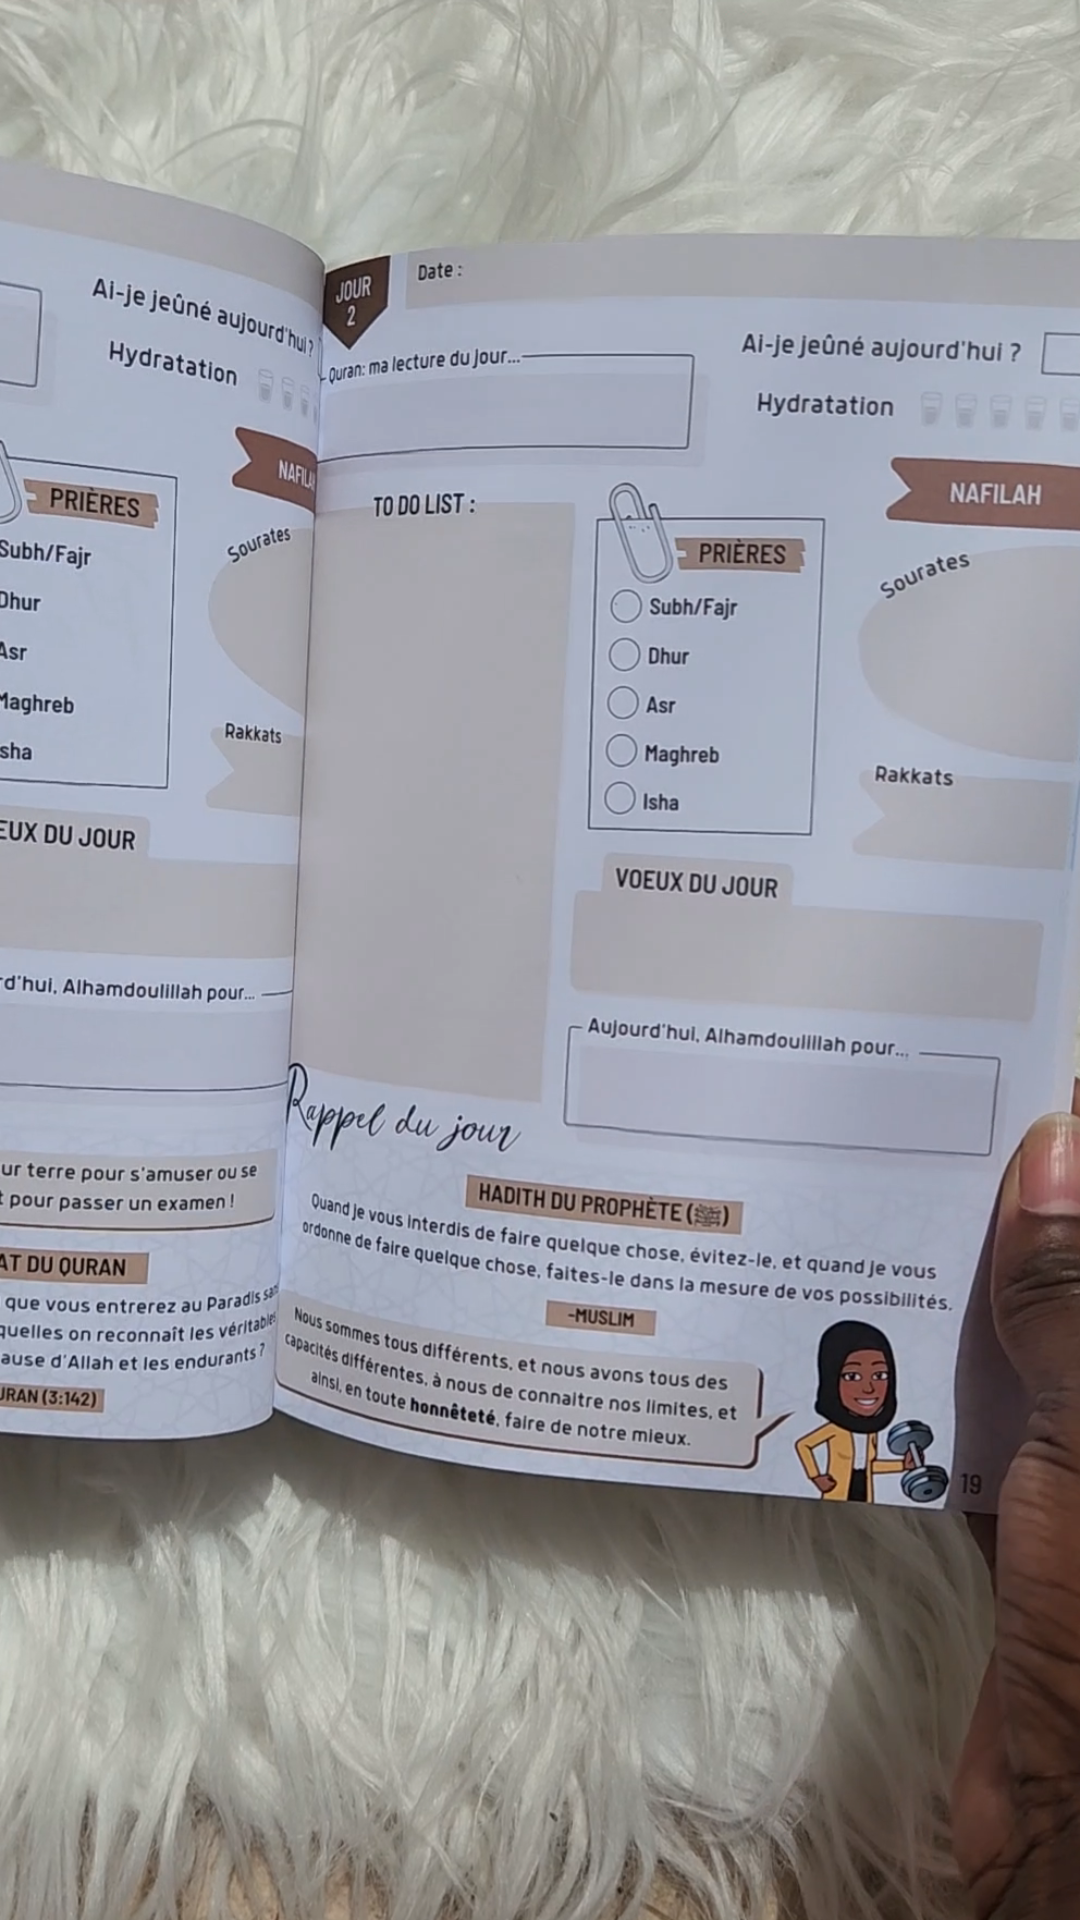 Ai-je jeûné aujourd'hui ?
Hydratation
NAFILA
PRIÈRES
Subh/Fajr
Dhur
Asr
Maghreb
sha
Sourates
Rakkats
EUX DU JOUR
d'hui, Alhamdoulillah pour...
ur terre pour s'amuser ou se
t pour passer un examen !
AT DU QURAN
que vous entrerez au Paradis
quelles on reconnaît les
ause d'Allah et les endurants ?
URAN (3:142)
JOUR
2
Date :
Quran: ma lecture du jour...
Ai-je jeûné aujourd'hui ?
Hydratation
TO DO LIST :
PRIÈRES
Subh/Fajr
Dhur
Asr
Maghreb
Isha
NAFILAH
Sourates
Rakkats
VOEUX DU JOUR
Aujourd'hui, Alhamdoulillah pour...
Rappel du jour
HADITH DU PROPHÈTE (ﷺ)
Quand je vous interdis de faire quelque chose, évitez-le, et quand je vous
ordonne de faire quelque chose, faites-le dans la mesure de vos possibilités.
-MUSLIM
Nous sommes tous différents, et nous avons tous des
capacités différentes, à nous de connaitre nos limites, et
ainsi, en toute honnêteté, faire de notre mieux.
19